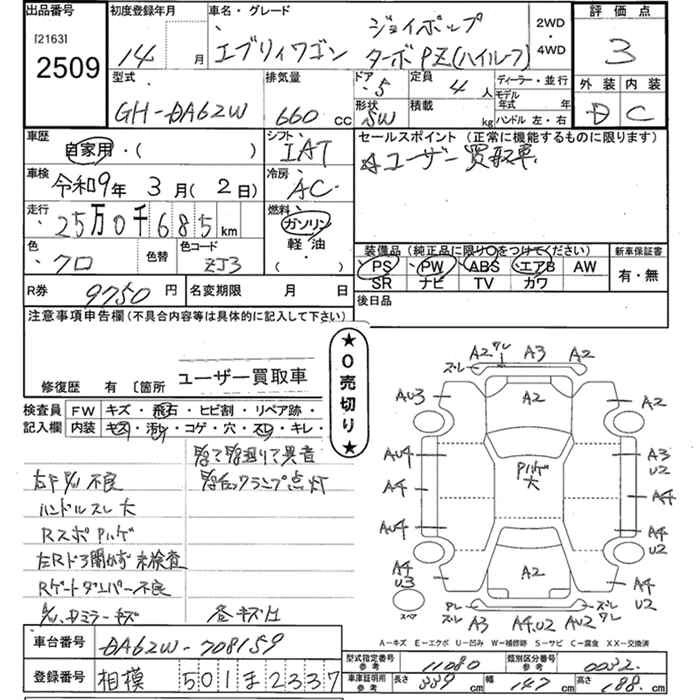 出品番号 初度登録年月 車名・グレード ジョイポップ 2WD 評価点
[2163] 14 月 エブリィワゴン ターボPZ(ハイルーフ) 4WD 3
2509
型式 排気量 ドア 5 定員 4人 ディーラー・並行 外装 内装
GH-DA62W 660 CC 形状 SW 積載 kg モデル年式 年 ハンドル 左・右 D C
車歴 自家用・( ) シフト IAT セールスポイント (正常に機能するものに限ります)
☆ユーザー買取車
車検 令和9年 3月(2日) 冷房 AC
走行 25万0千685km 燃料 ガソリン
軽・油
( )
色 クロ 色替 色コード ZJ3
装備品(純正品に限り○をつけてください) 新車保証書
PS PW ABS エアB AW 有・無
SR ナビ TV カワ
R券 9750円 名変期限 月 日 後日品
注意事項申告欄(不具合内容等は具体的に記入して下さい)
★0売切り★
ユーザー買取車
修復歴 有 〔箇所
検査員 FW キズ・飛石・ヒビ割・リペア跡・
記入欄 内装 キズ・汚レ・コゲ・穴・スレ・キレ・
異音
不良 点灯
ハンドルスレ大
RスポPハゲ
左Rドア開かず未検査
Rゲートダンパー不良
ミラーキズ 各キズ凹
A2 ワレ A3 A2
スレ スレ
A2
AU3 A2
AU4 A3
U2
Pハゲ
大
A4 A4
AU4 A4
U2
A4
U3 A2 A4
U2
スペア
ワレ スレ スレ ワレ
A3 A4,U2 AU2
A－キズ E－エクボ U－凹み W－補修跡 S－サビ C－腐食 XX－交換済
車台番号 DA62W-708159
型式指定番号 参考 11080 類別区分番号 参考 0032
登録番号 相模 501ま2337
車庫証明用 参考 長さ 339cm 幅 147cm 高さ 188cm